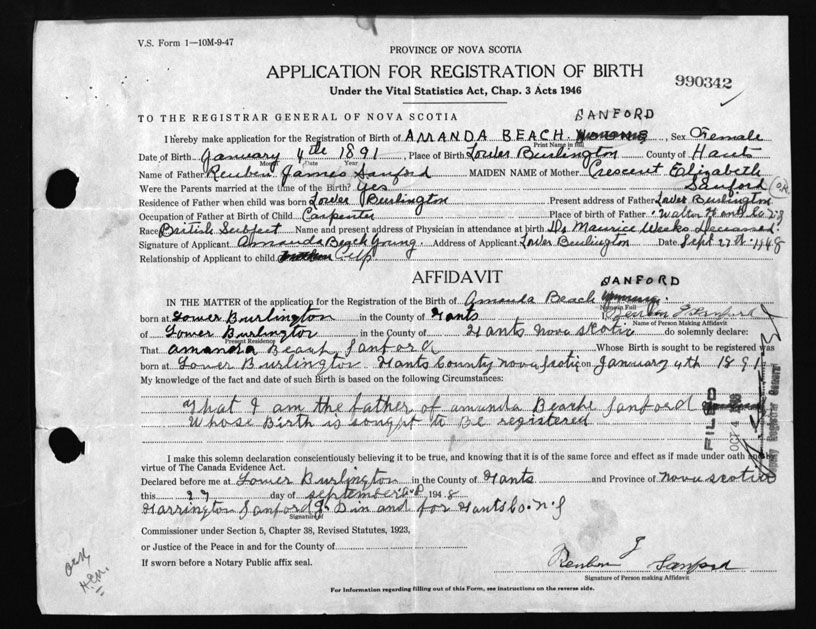 V.S. Form 1—10M-9-47
PROVINCE OF NOVA SCOTIA
APPLICATION FOR REGISTRATION OF BIRTH
990342
Under the Vital Statistics Act, Chap. 3 Acts 1946
SANFORD
TO THE REGISTRAR GENERAL OF NOVA SCOTIA
I hereby make application for the Registration of Birth of AMANDA BEACH, Sex Female
Print Name in full
Date of Birth January 4th 1891, Place of Birth Lower Burlington County of Hants
Month Date Year
Name of Father Reuben James Sanford MAIDEN NAME of Mother Crescent Elizabeth
Sanford
Were the Parents married at the time of the Birth? Yes
Residence of Father when child was born Lower Burlington Present address of Father Lower Burlington
Occupation of Father at Birth of Child Carpenter Place of Birth of Father Walton Hants Co. N.S
Race British Subject Name and present address of Physician in attendance at birth Dr Maurice Weeks Deceased.
Signature of Applicant Amanda Beach Young. Address of Applicant Lower Burlington Date Sept 27th 1948
Relationship of Applicant to child
AFFIDAVIT
SANFORD
IN THE MATTER of the application for the Registration of the Birth of Amanda Beach
Name in Full
born at Lower Burlington in the County of Hants I Reuben J Sanford
Name of Person Making Affidavit
of Lower Burlington in the County of Hants Nova Scotia do solemnly declare:
Present Residence
That Amanda Beach Sanford Whose Birth is sought to be registered was
born at Lower Burlington Hants County Nova Scotia on January 4th 1891
My knowledge of the fact and date of such Birth is based on the following Circumstances:
That I am the father of Amanda Beache Sanford
Whose Birth is sought to Be registered
FILED
OCT 4
I make this solemn declaration conscientiously believing it to be true, and knowing that it is of the same force and effect as if made under oath and by
virtue of The Canada Evidence Act.
Declared before me at Lower Burlington in the County of Hants and Province of Nova Scotia
this 27 day of September 1948
Harrington Sanford J P in and for Hants Co. N.S
Signature of
Commissioner under Section 5, Chapter 38, Revised Statutes, 1923,
or Justice of the Peace in and for the County of
If sworn before a Notary Public affix seal.
Reuben J Sanford
Signature of Person making Affidavit
For Information regarding filling out of this Form, see instructions on the reverse side.